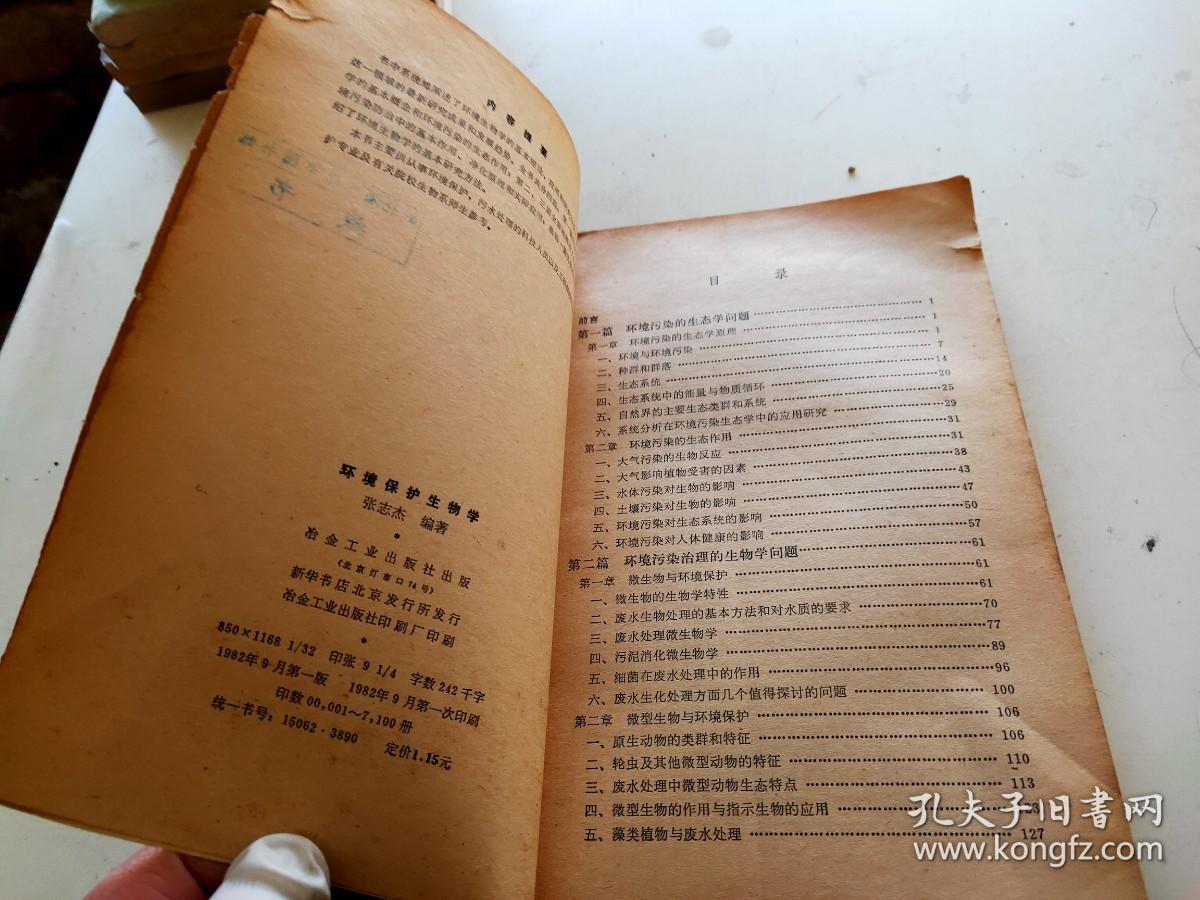 内容提要
书中系统地阐述了环境生物学的基本理论
这一领域的最新研究成果和发展趋势。全书共分四篇
学的基本概念和环境污染的生态作用；第二、三篇
境污染防治中的基本作用、净化原理和实际应用
绍了环境生物学的基本研究方法。
本书主要供从事环境保护、污水处理的科技人员以及
护专业及有关院校生物系师生参考。
环境保护生物学
张志杰 编著
*
冶金工业出版社出版
(北京灯市口74号)
新华书店北京发行所发行
冶金工业出版社印刷厂印刷
*
850×1168 1/32 印张 9 1/4 字数 242 千字
1982年9月第一版 1982年9月第一次印刷
印数00,001～7,100 册
统一书号：15062·3890 定价1.15元
目 录
前言
第一篇 环境污染的生态学问题 1
第一章 环境污染的生态学原理 1
一、环境与环境污染 1
二、种群和群落 7
三、生态系统 14
四、生态系统中的能量与物质循环 20
五、自然界的主要生态类群和系统 25
六、系统分析在环境污染生态学中的应用研究 29
第二章 环境污染的生态作用 31
一、大气污染的生物反应 31
二、大气影响植物受害的因素 38
三、水体污染对生物的影响 43
四、土壤污染对生物的影响 47
五、环境污染对生态系统的影响 50
六、环境污染对人体健康的影响 57
第二篇 环境污染治理的生物学问题 61
第一章 微生物与环境保护 61
一、微生物的生物学特性 61
二、废水生物处理的基本方法和对水质的要求 70
三、废水处理微生物学 77
四、污泥消化微生物学 89
五、细菌在废水处理中的作用 96
六、废水生化处理方面几个值得探讨的问题 100
第二章 微型生物与环境保护 106
一、原生动物的类群和特征 106
二、轮虫及其他微型动物的特征 110
三、废水处理中微型动物生态特点 113
四、微型生物的作用与指示生物的应用
五、藻类植物与废水处理 127
孔夫子旧书网
www.kongfz.com